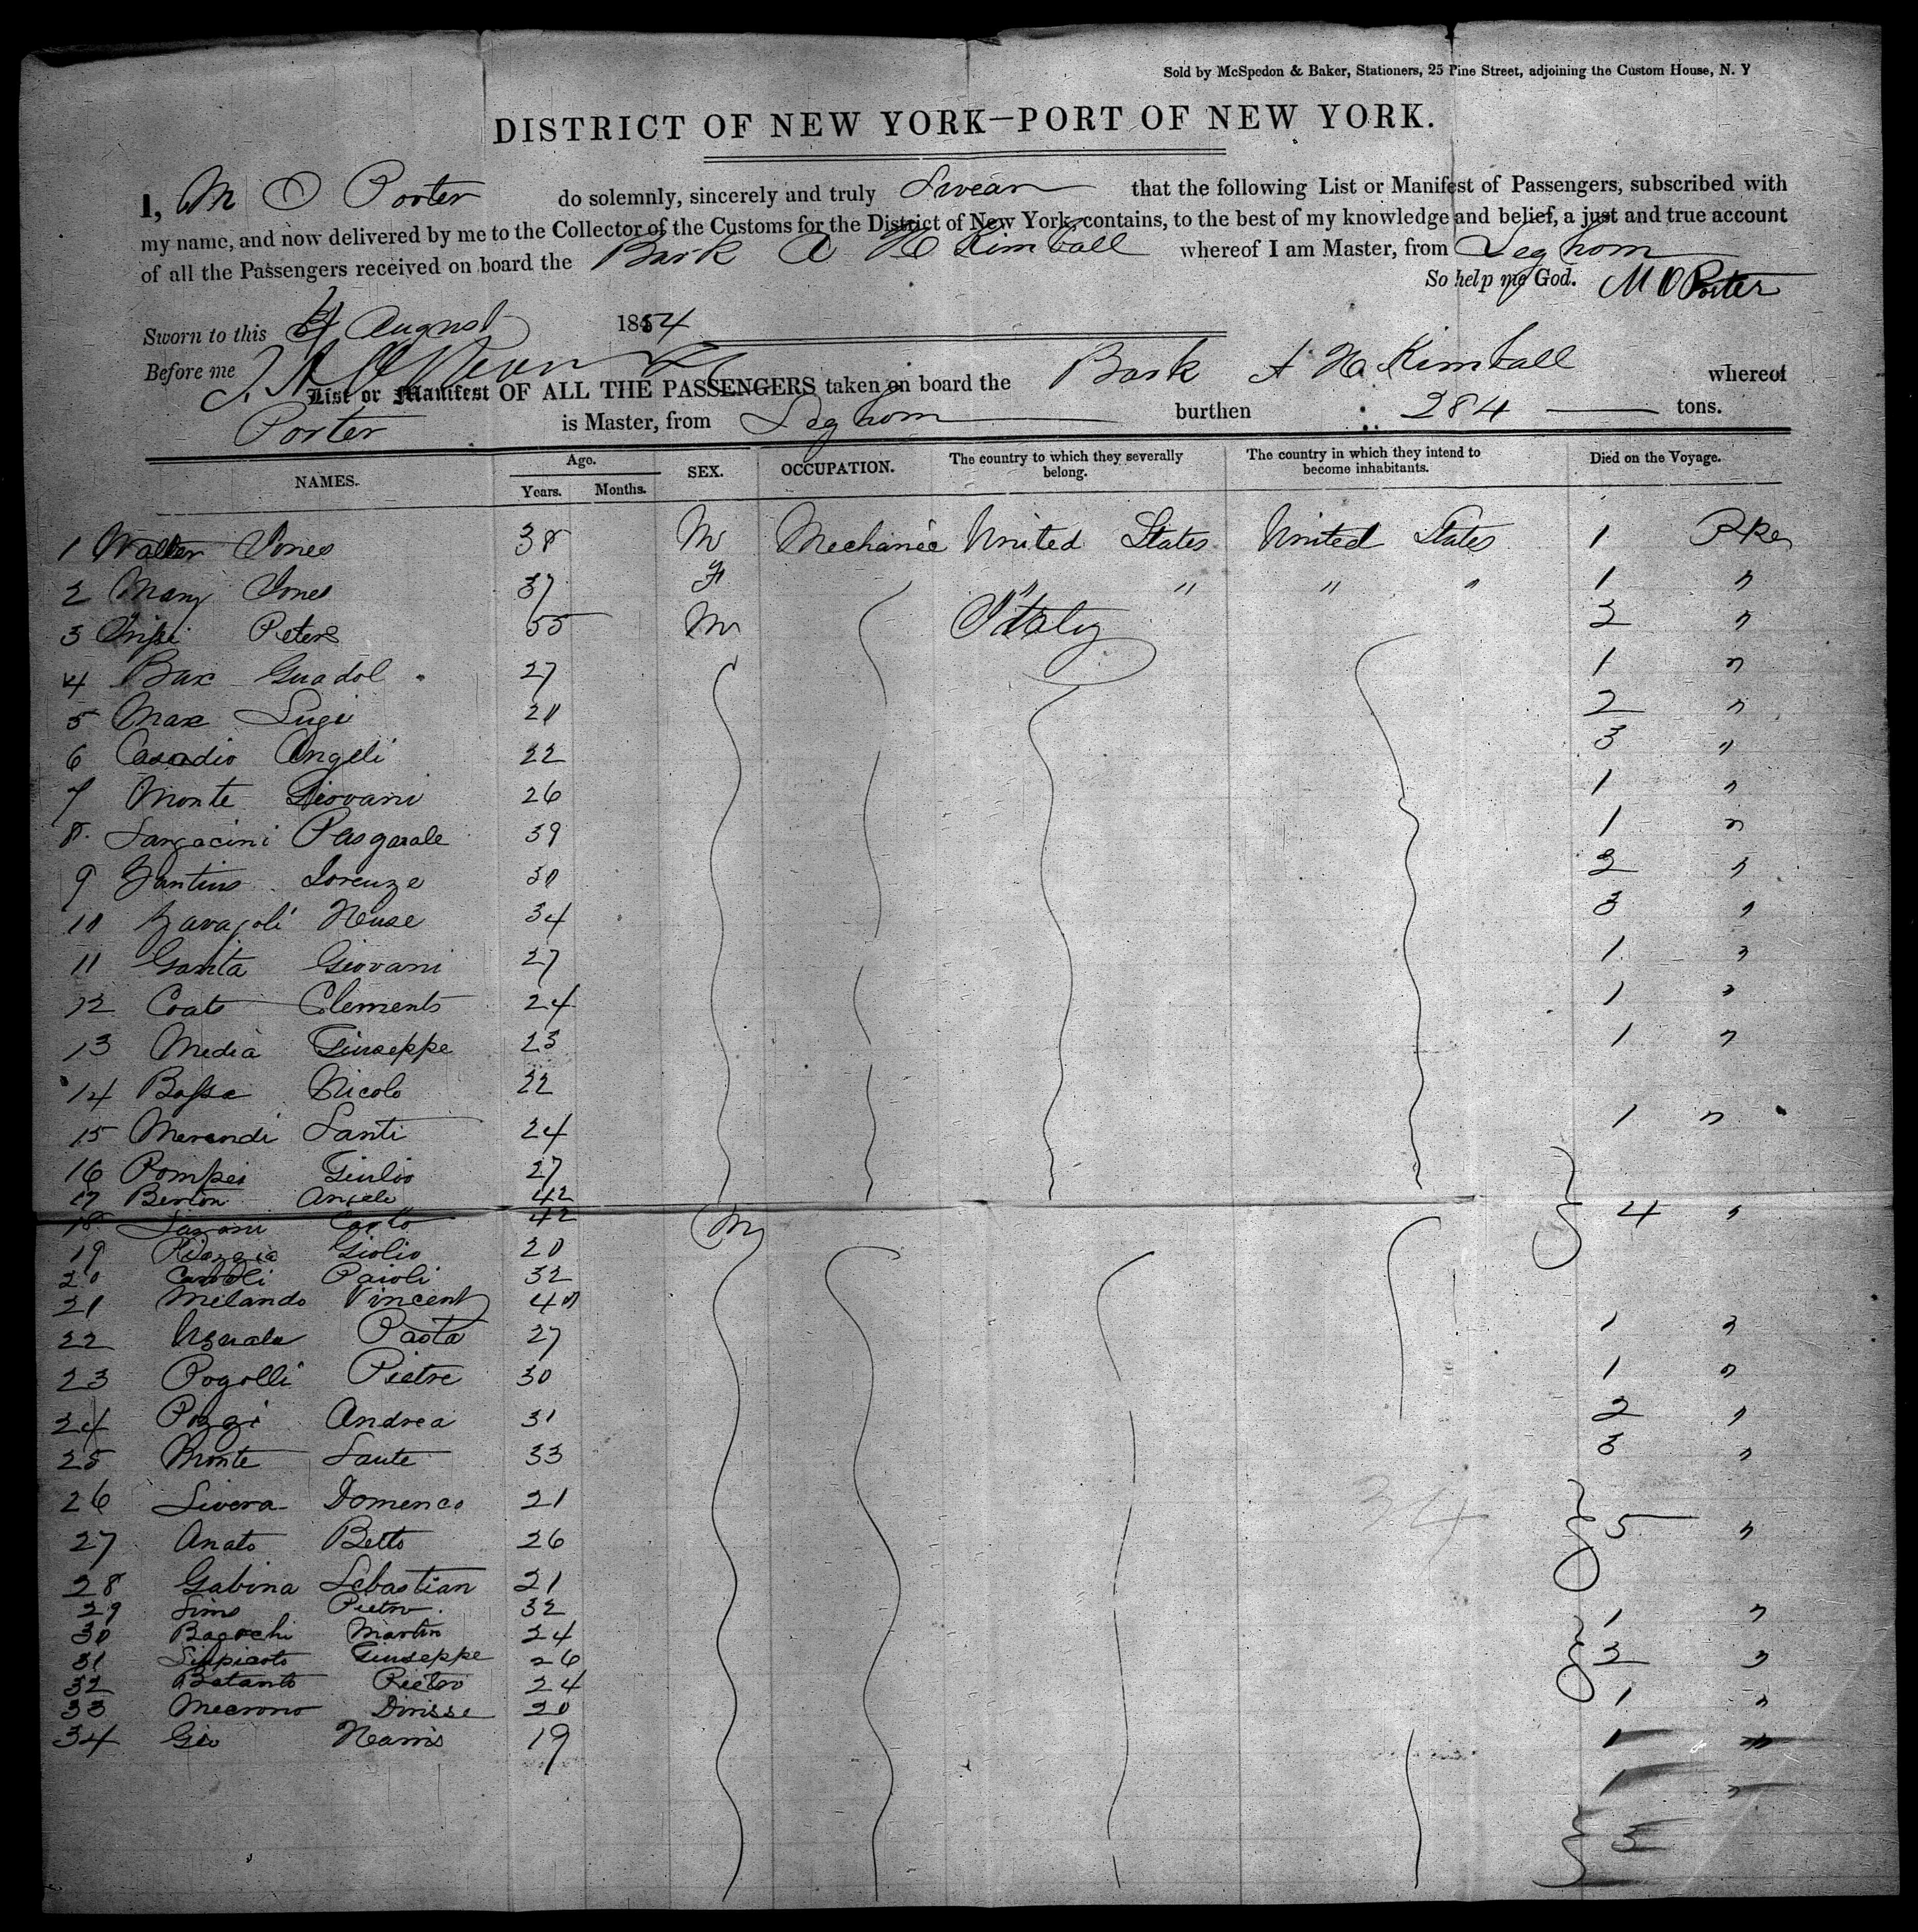 Sold by McSpedon & Baker, Stationers, 25 Pine Street, adjoining the Custom House, N. Y
DISTRICT OF NEW YORK—PORT OF NEW YORK.
I, M O Porter do solemnly, sincerely and truly Swear that the following List or Manifest of Passengers, subscribed with
my name, and now delivered by me to the Collector of the Customs for the District of New York, contains, to the best of my knowledge and belief, a just and true account
of all the Passengers received on board the Bark A H Kimball whereof I am Master, from Leghorn
So help me God. M O Porter
Sworn to this August 1854
Before me
List or Manifest OF ALL THE PASSENGERS taken on board the Bark A H Kimball whereof
Porter is Master, from Leghorn burthen 284 tons.
NAMES. Age. Years. Months. SEX. OCCUPATION. The country to which they severally belong. The country in which they intend to become inhabitants. Died on the Voyage.
1 Walter Jones 38 M Mechanic United States United States 1 Pke
2 Mary Jones 37 F " " " " 1 "
3 Peters 55 M Italy 2 "
4 Bax Guadol 27 1 "
5 Max Lugi 20 2 "
6 Casadio Angeli 22 3 "
7 Monte Giovani 26 1 "
8 Pasquale 39 1 "
9 Lorenze 30 2 "
10 Neuse 34 3 "
11 Ganta Giovani 27 1 "
12 Coato Clements 24 1 "
13 Media Giuseppe 23 1 "
14 Bassa Nicolo 22
15 Merendi Santi 24 1 "
16 Pompei Giulio 27
17 Berton Angelo 42
18 Carlo 42 M 4 "
19 Giolio 20
20 Paioli 32
21 Milando Vincent 40
22 Paota 27 1 "
23 Pogolli Pietre 30 1 "
24 Poggi Andrea 31 2 "
25 Monte Sante 33 3 "
26 Livera Domenco 21
27 Anato Betto 26 5 "
28 Gabina Sebastian 21
29 Simo Pietro 32 1 "
30 Martin 24
31 Giuseppe 26 2 "
32 Batanto Pietro 24
33 Mecrono Dirisse 20 1 "
34 Gio Narris 19 1 "
1 "
3
34